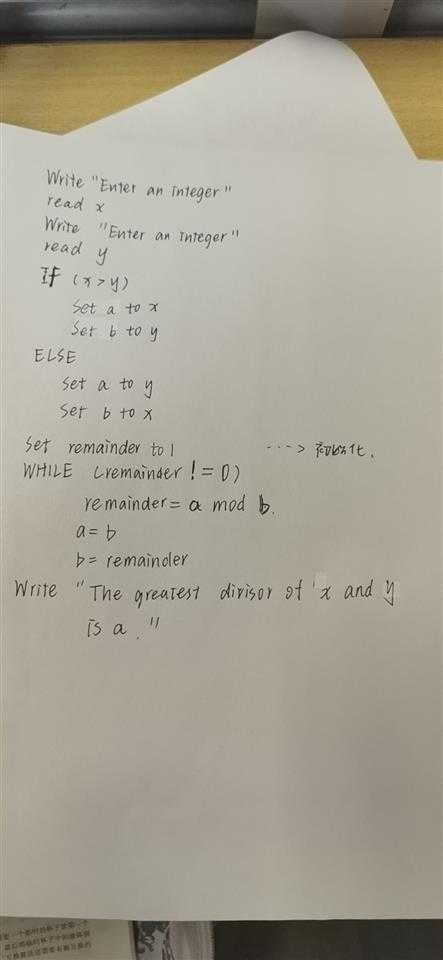 Write "Enter an integer"
read x
Write "Enter an integer"
read y
If (x>y)
Set a to x
Set b to y
ELSE
Set a to y
Set b to x
Set remainder to 1 ---> 初始化.
WHILE (remainder != 0)
remainder = a mod b.
a = b
b = remainder
Write "The greatest divisor of x and y
is a."